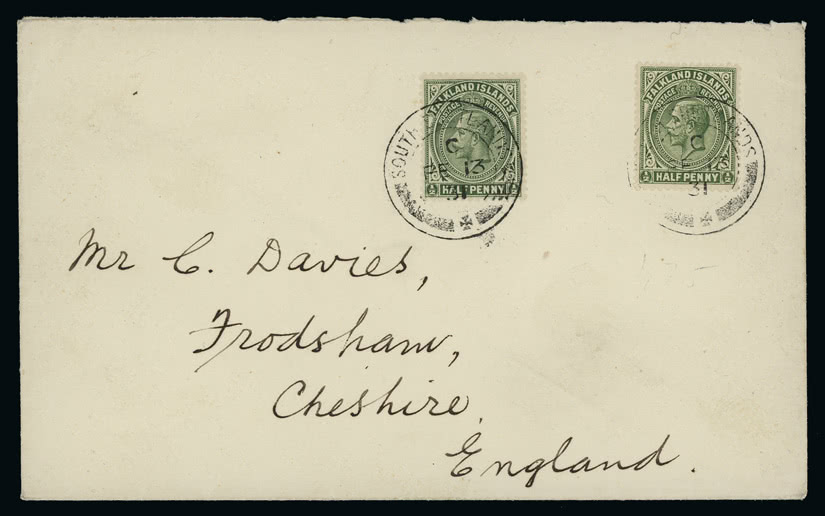 FALKLAND ISLANDS
POSTAGE REVENUE
½ HALF PENNY ½
FALKLAND ISLANDS
POSTAGE
½ HALF PENNY ½
SOUTH
C
13
31
C
31
Mr C. Davies,
Frodsham,
Cheshire,
England.